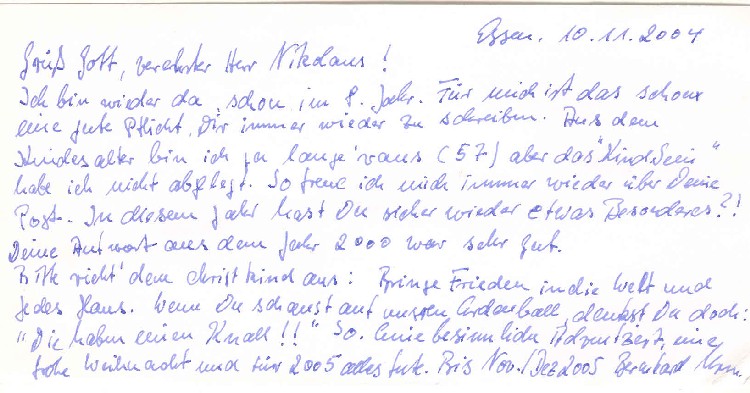 Essen, 10.11.2004
Grüß Gott, verehrter Herr Nikolaus!
Ich bin wieder da, schon im 8. Jahr. Für mich ist das schon
eine gute Pflicht, Dir immer wieder zu schreiben. Aus dem
Kindesalter bin ich ja lange 'raus (57) aber das "Kind Sein"
habe ich nicht abgelegt. So freue ich mich immer wieder über Deine
Post. In diesem Jahr hast Du sicher wieder etwas Besonderes?!
Deine Antwort aus dem Jahr 2000 war sehr gut.
Bitte richt' dem Christkind aus: Bringe Frieden in die Welt und
jedes Haus. Wenn Du schaust auf unseren Erdenball, denkst Du doch:
"Die haben einen Knall!!" So. Eine besinnliche Adventszeit, eine
frohe Weihnacht und für 2005 alles Gute. Bis Nov./Dez 2005 Bernhard